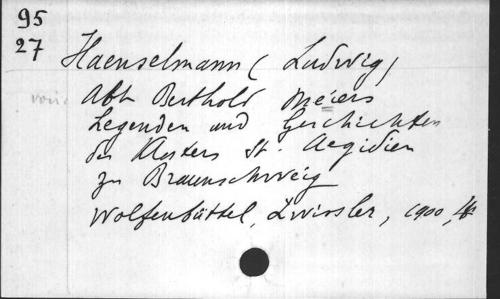 95
27
Haenselmann (Ludwig)
Abt Berthold Meiers
Legenden und Geschichten
des Klosters St. Aegidien
zu Braunschweig
Wolfenbüttel, Zwissler, 1900, 4°